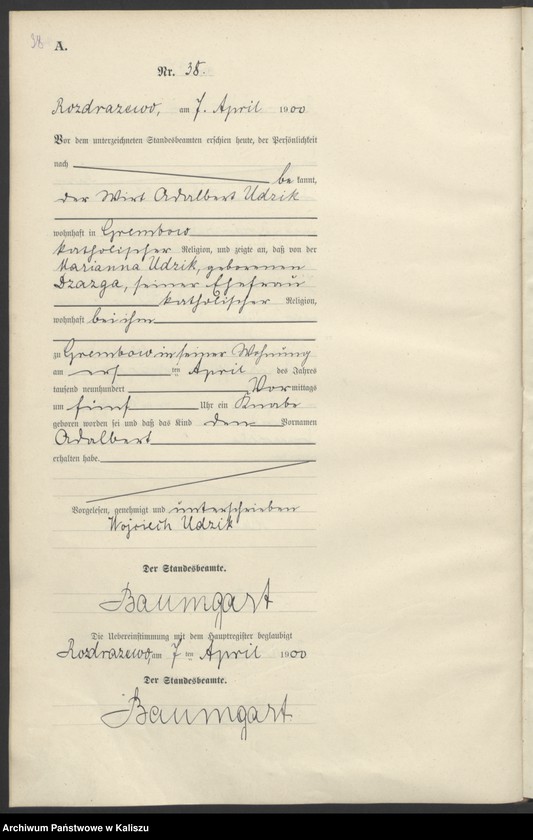 38
A.
Nr. 38.
Rozdrazewo, am 7. April 1900
Vor dem unterzeichneten Standesbeamten erschien heute, der Persönlichkeit
nach
be kannt,
der Wirt Adalbert Udzik
wohnhaft in Grembow
katholischer Religion, und zeigte an, daß von der
Marianna Udzik, geborenen
Dzazga, seiner Ehefrau
katholischer Religion,
wohnhaft bei ihm
zu Grembow in seiner Wohnung
am ersten April des Jahres
tausend neunhundert Vor mittags
um fünf Uhr ein Knabe
geboren worden sei und daß das Kind den Vornamen
Adalbert
erhalten habe.
Vorgelesen, genehmigt und unterschrieben
Wojciech Udzik
Der Standesbeamte.
Baumgart
Die Uebereinstimmung mit dem Hauptregister beglaubigt
Rozdrazewo, am 7 ten April 1900
Der Standesbeamte.
Baumgart
Archiwum Państwowe w Kaliszu